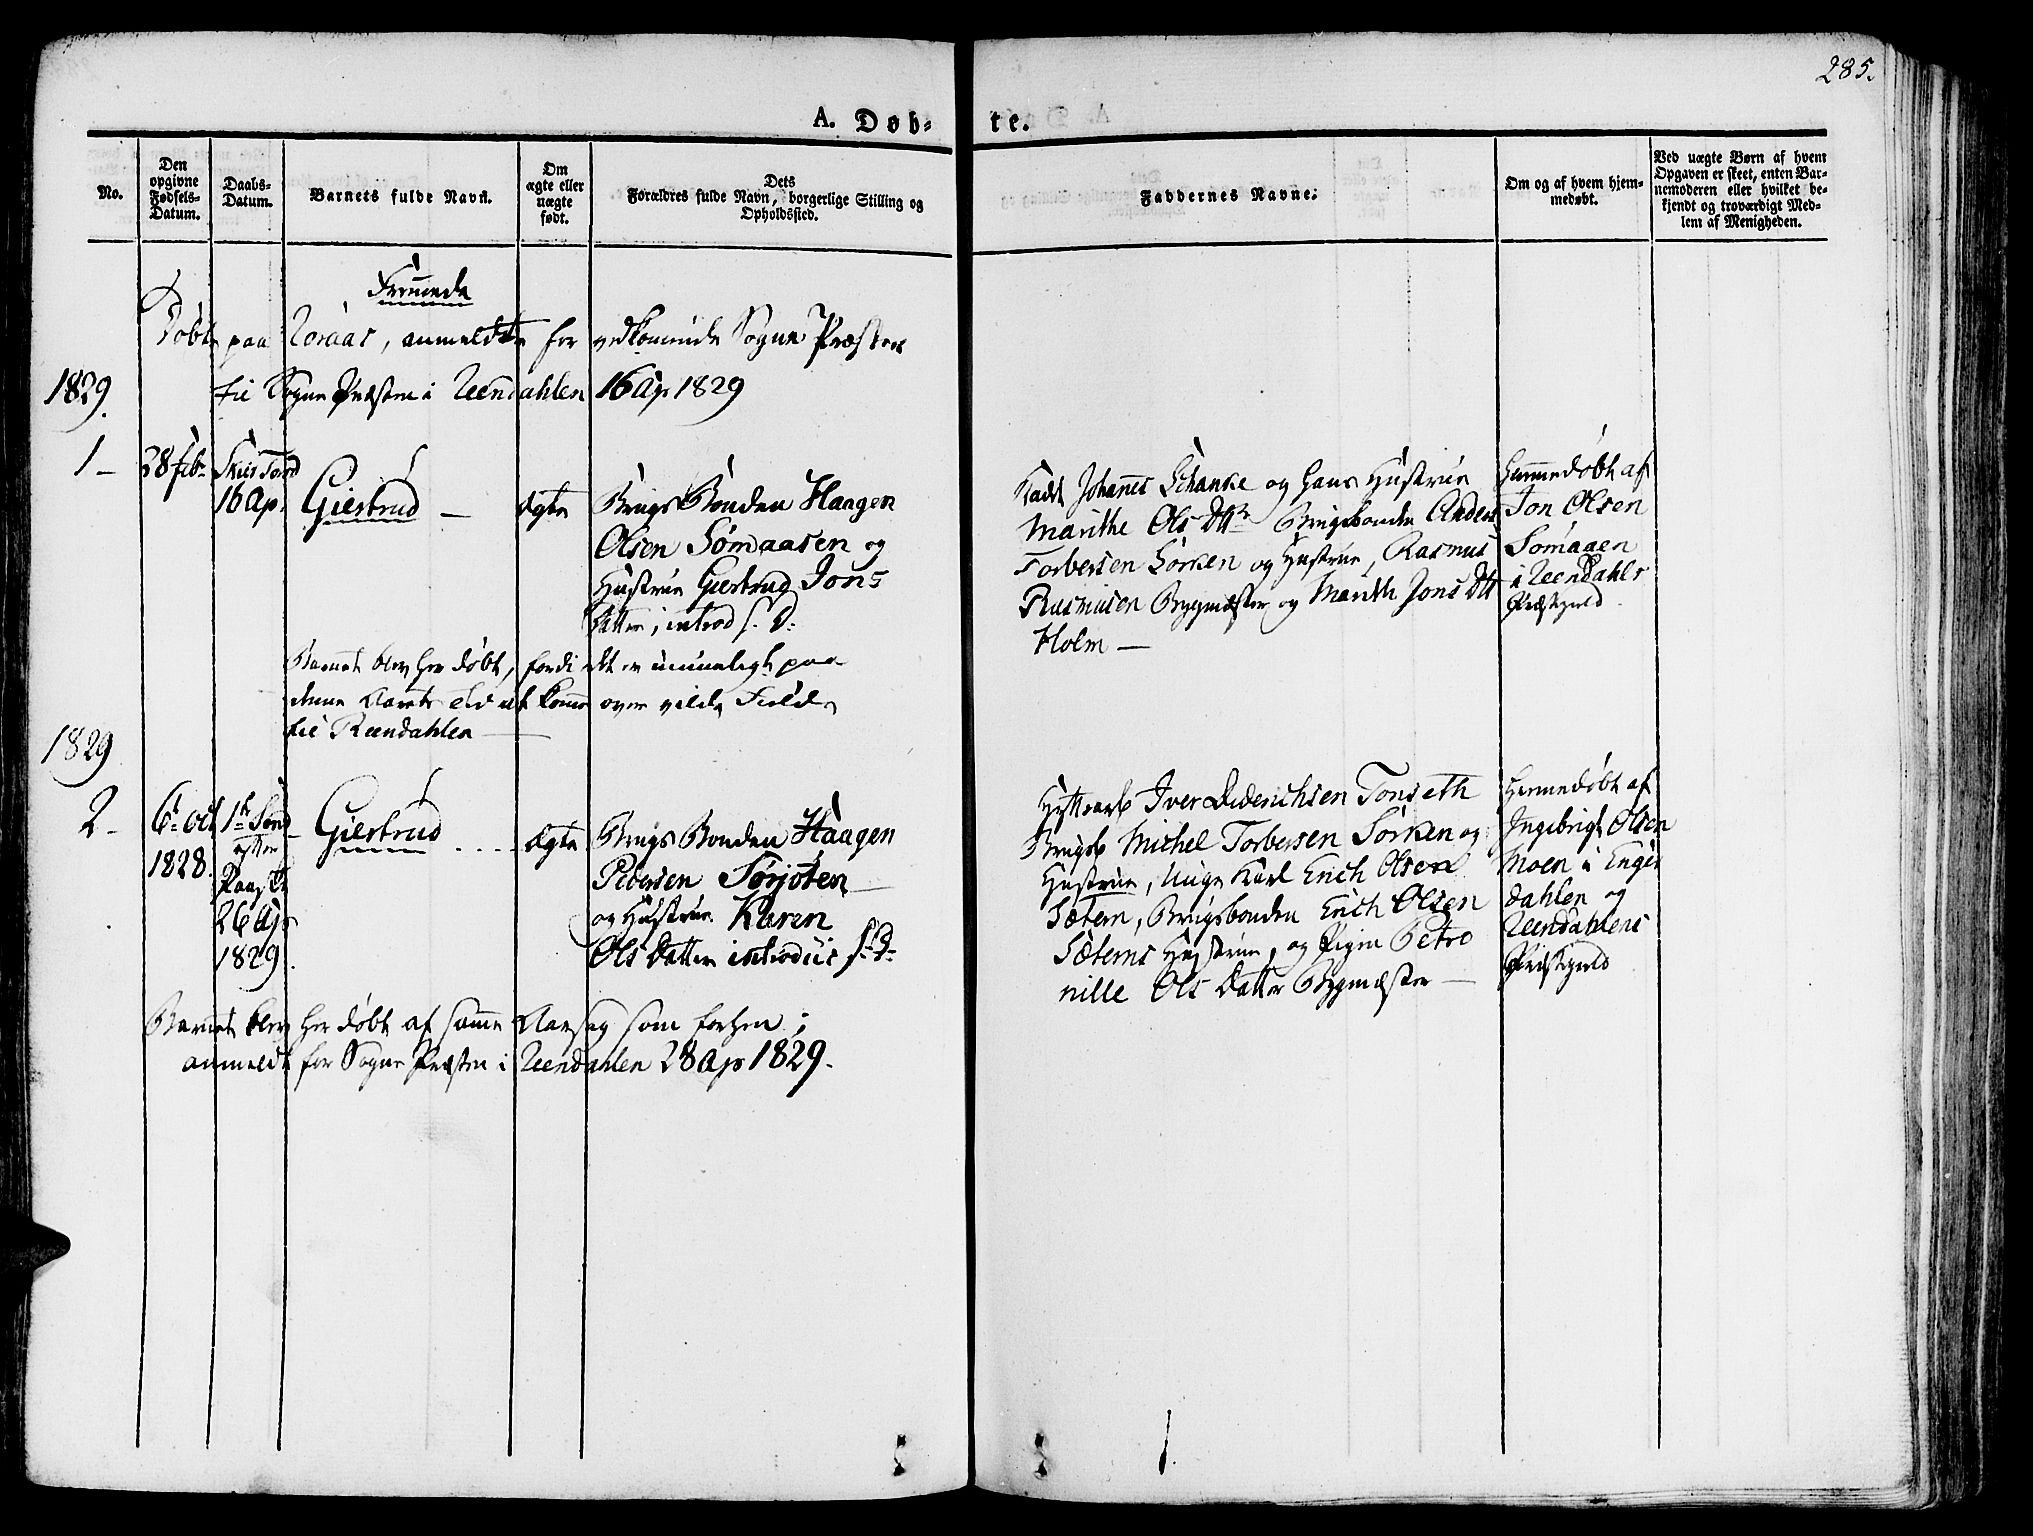 285.
A. Døb-
te.
No.
Den
opgivne
Fødsels-
Datum.
Daabs-
Datum.
Barnets fulde Navn.
Om
ægte eller
uægte
født.
Dets
Forældres fulde Navn, borgerlige Stilling og
Opholdssted.
Faddernes Navne.
Om og af hvem hjem-
medøbt.
Ved uægte Børn af hvem
Opgaven er skeet, enten Bar-
nemoderen eller hvilket be-
kjendt og troværdigt Med-
lem af Menigheden.
Fremmede
Døbte paa Roraas, anmeldte for vedkommende Sogne Præster
1829.
til Sogne Præsten i Reendahlen 16 Ap 1829
1 -
28 Feb.
16 Ap.
Giertrud -
ægte
Brugs Bonden Haagen
Olsen Sømaasen og
Hustrue Giertrud Jons
Datter, introd s. D:
Johannes Schanke og hans Hustrue
Marithe Ols Dttr Brugsbonden Anders
Torbersen Sorken og Hustrue, Rasmus
Rasmusen Bygmæster og Marith Jons Dtt
Holm -
Hiemmedøbt af
Jon Olsen
Somaaen
i Reendahls
Præstegield.
Barnet blev her døbt, fordi det er umueligt paa
denne Aarets Tid at komme over vilde Field
til Reendahlen
1829
2 -
6 Oct
1828.
1ste Sønd
efter
Paaske
26 Ap
1829.
Giertrud
ægte
Brugs Bonden Haagen
Pedersen Sørjoten
og Hustrue Karen
Ols Datter introduc s. D.
Iver Dideriksen Tonseth
Michel Torbersen Sorken og
Hustrue, Unge Karl Erich Olsen
Sætern, Brugsbonden Erich Olsen
Sæterns Hustrue, og Pigen Petro
nille Ols Datter Bygmæster -
Hiemmedøbt af
Ingebrigt Olsen
Moen i Enger
dahlen og
Reendahlens
Præstegield
Barnet blev her døbt af samme Aarsag som forhen;
anmeldt for Sogne Præsten i Reendahlen 28 Ap 1829.